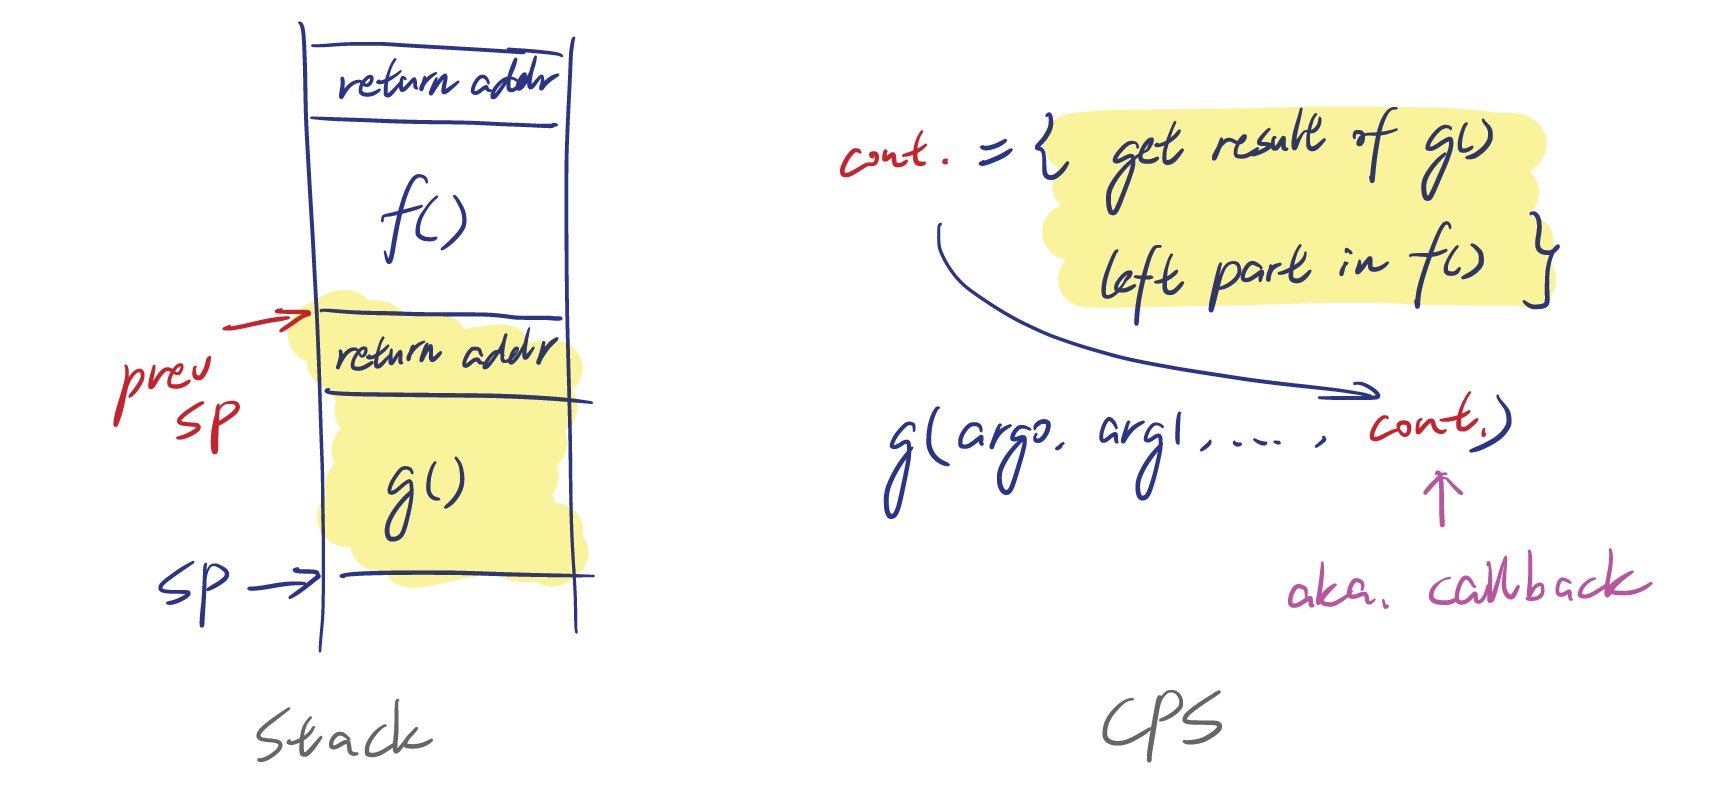 return addr
f()
prev
sp
return addr
g()
sp →
Stack
cont. = { get result of g()
left part in f() }
g(arg0, arg1, ...., cont.)
aka. callback
CPS